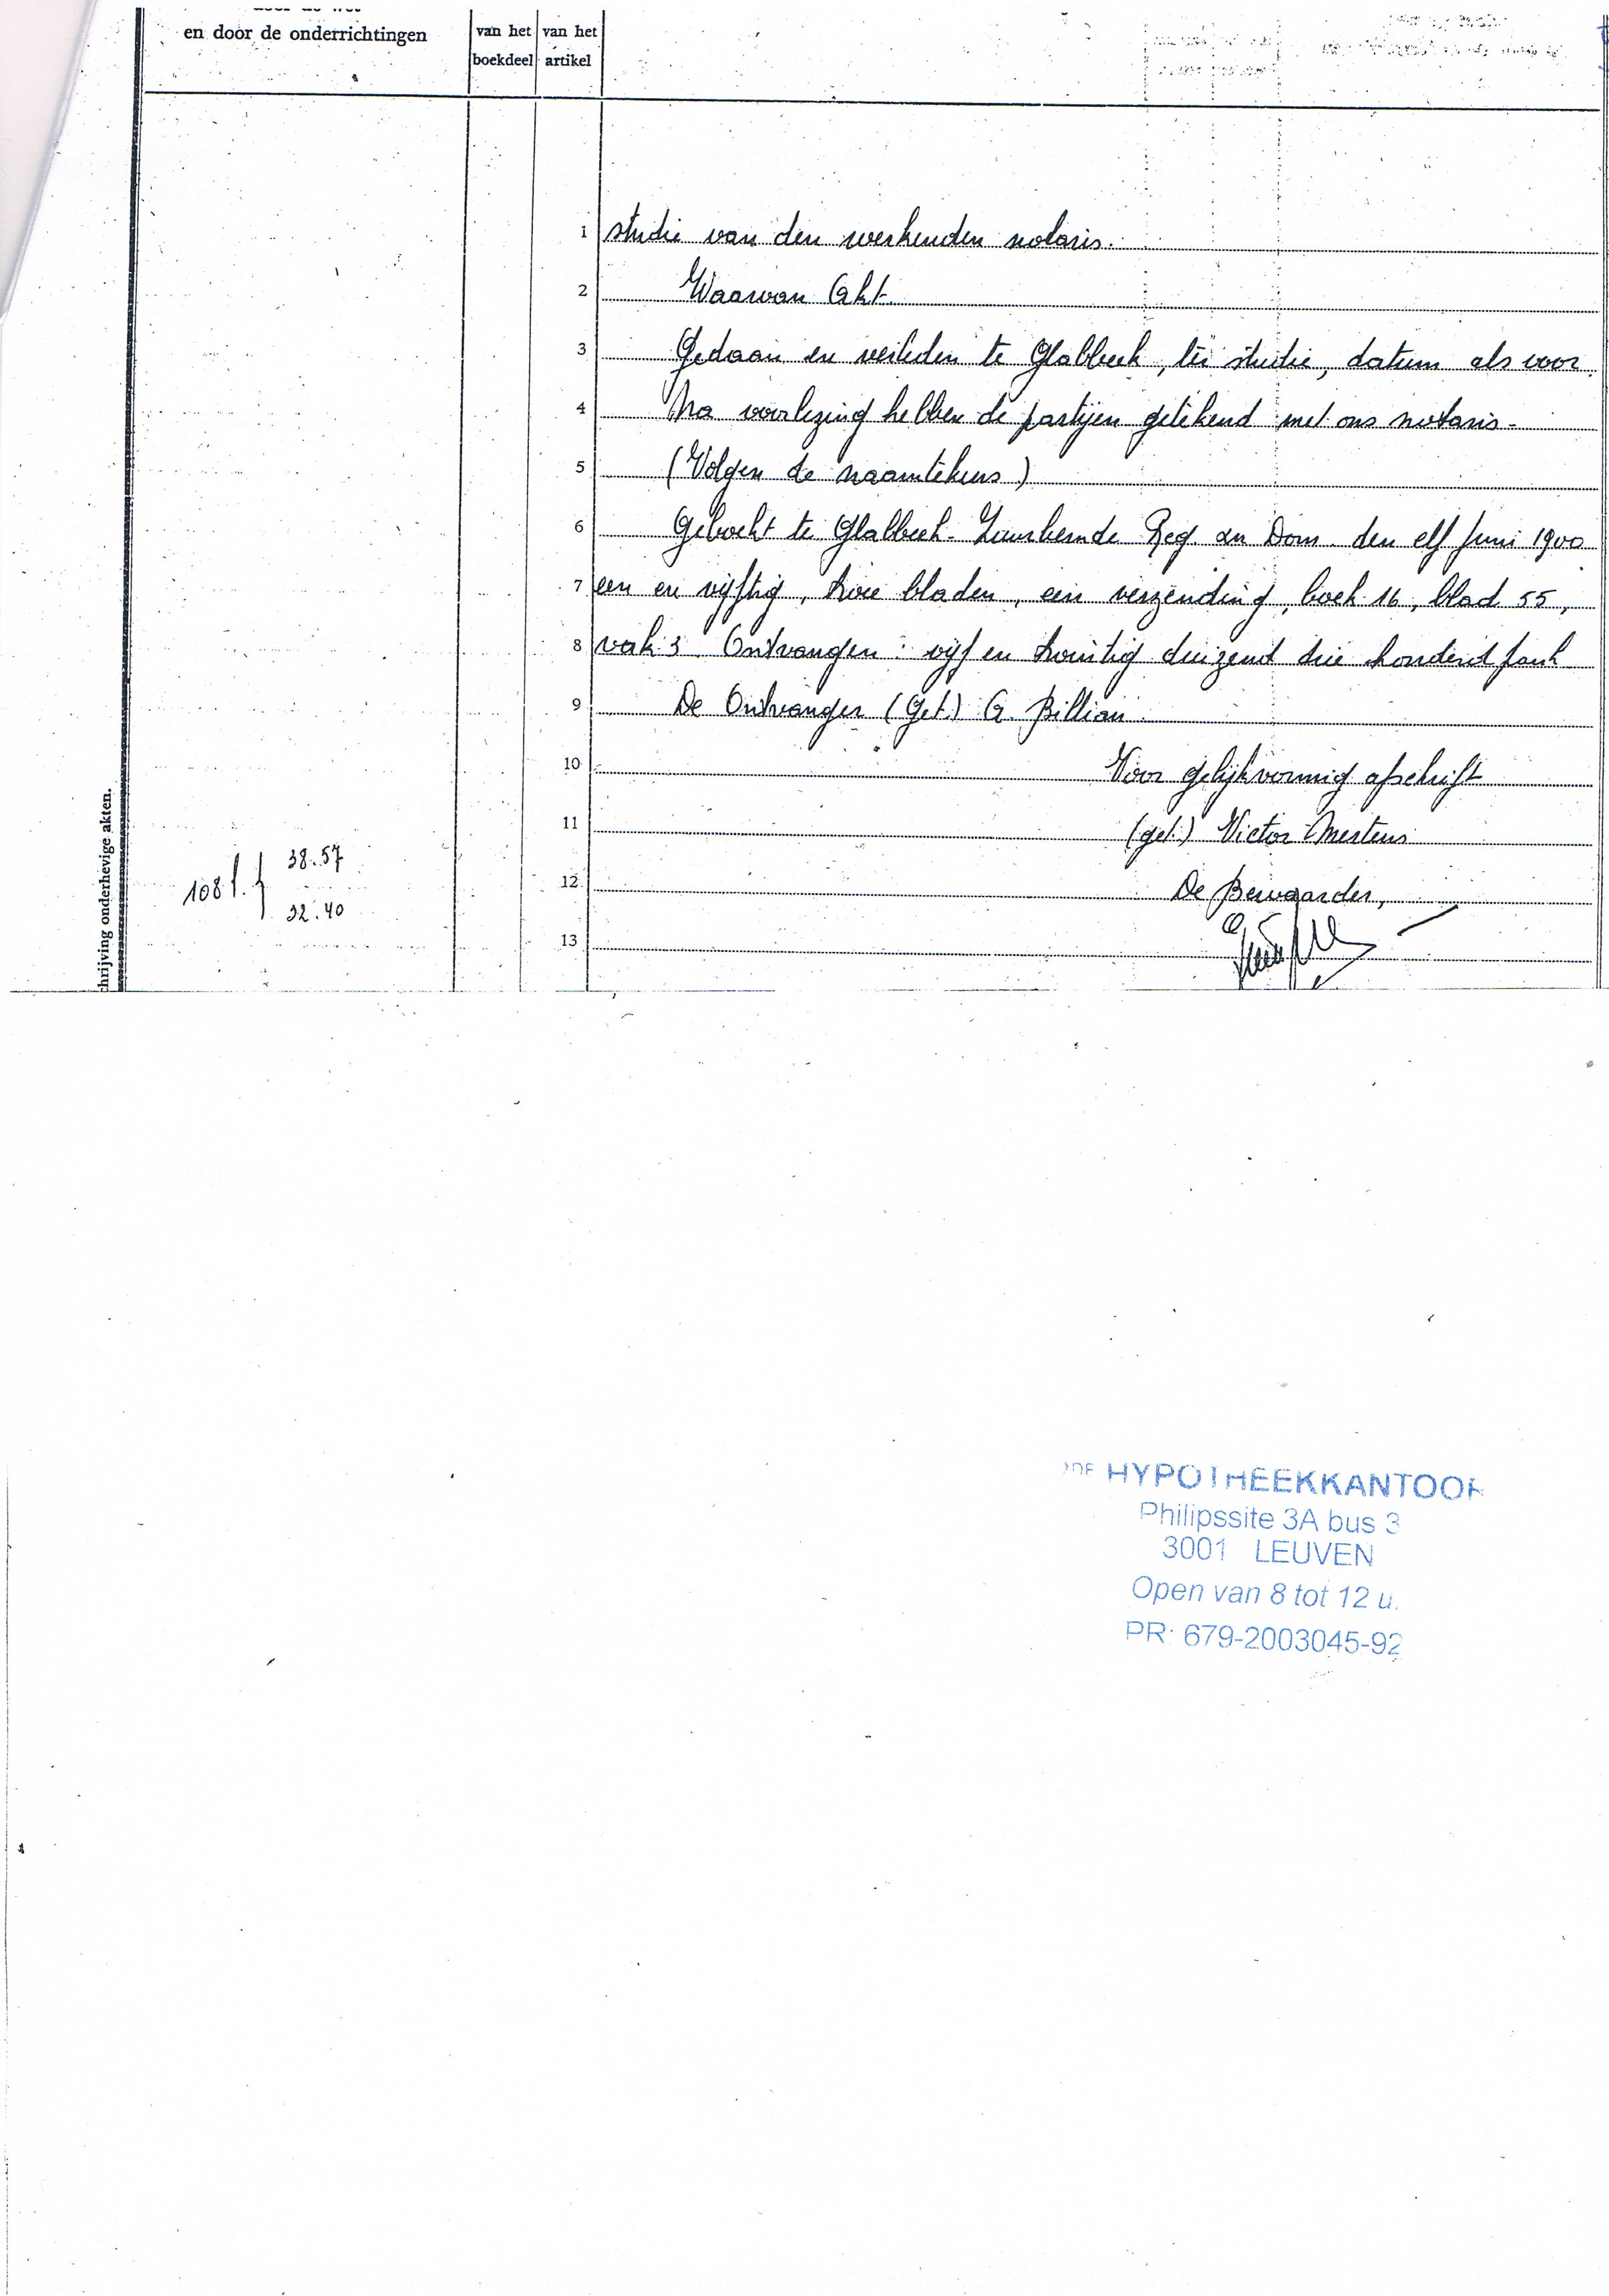 en door de onderrichtingen
van het boekdeel
van het artikel
1 studie van den werkenden notaris.
2 Waarvan Akt
3 Gedaan en verleden te Glabbeek, ter studie, datum als voor.
4 Na voorlezing hebben de partijen getekend met ons notaris-
5 (Volgen de naamtekens)
6 Geboekt te Glabbeek- Reg. en Dom. den elf Juni 1900
7 een en vijftig, twee bladen, een verzending, boek 16, blad 55,
8 vak 3 Ontvangen: vijf en twintig duizend drie honderd frank
9 De Ontvanger (Get.) G. Billian.
10 Voor gelijkvormig afschrift
11 (get.) Victor Mertens
12 De Bewaarder,
13
38.57
108 f.
32.40
chrijving onderhevige akten.
HYPOTHEEKKANTOOR
Philipssite 3A bus 3
3001 LEUVEN
Open van 8 tot 12 u.
PR: 679-2003045-92